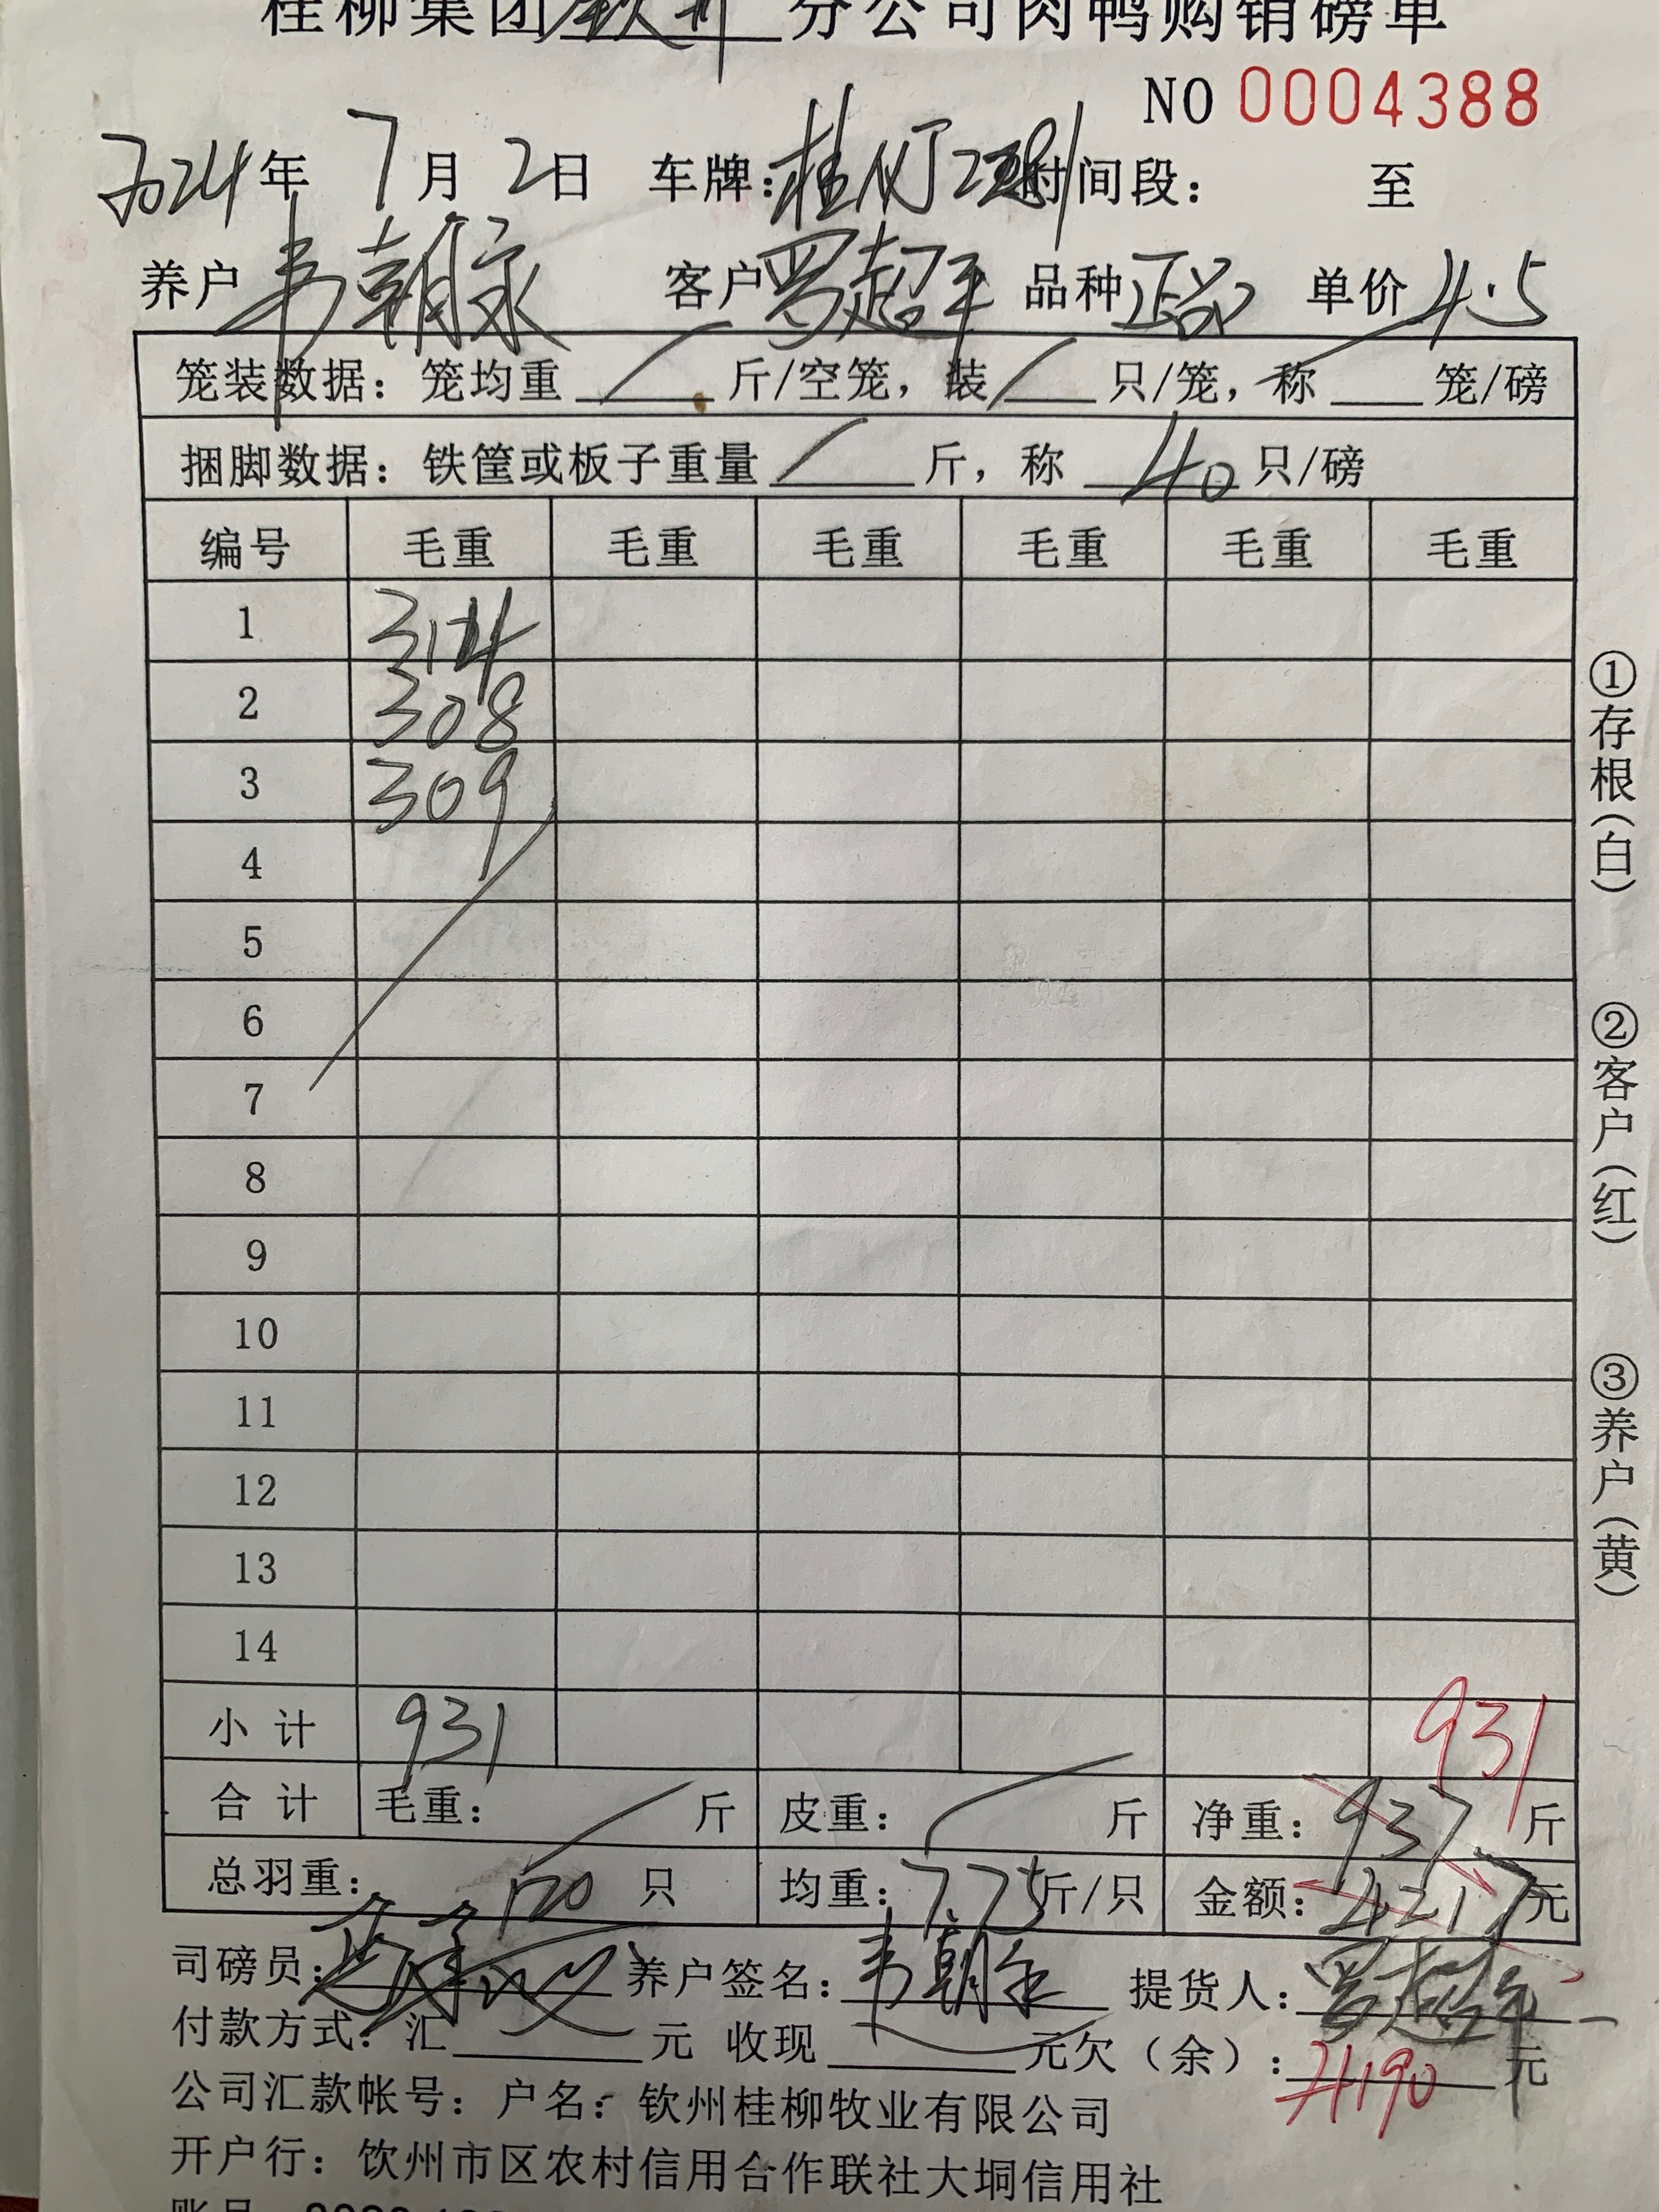 桂柳集团钦州分公司肉鸭购销磅单
NO 0004388
2024年 7月 2日 车牌: 桂 时间段: 至
养户 韦朝永 客户 罗超平 品种 正品 单价 4.5
笼装数据: 笼均重 斤/空笼, 装 只/笼, 称 笼/磅
捆脚数据: 铁筐或板子重量 斤, 称 40 只/磅
编号 毛重 毛重 毛重 毛重 毛重 毛重
1 314
2 308
3 309
4
5
6
7
8
9
10
11
12
13
14
小计 931 931
合计 毛重: 斤 皮重: 斤 净重: 937 斤
总羽重: 120 只 均重: 7.75 斤/只 金额: 4217 元
司磅员: 养户签名: 韦朝永 提货人: 罗超平
付款方式: 汇 元 收现 元欠(余): 4190 元
公司汇款帐号: 户名: 钦州桂柳牧业有限公司
开户行: 钦州市区农村信用合作联社大垌信用社
账号
①存根(白)
②客户(红)
③养户(黄)